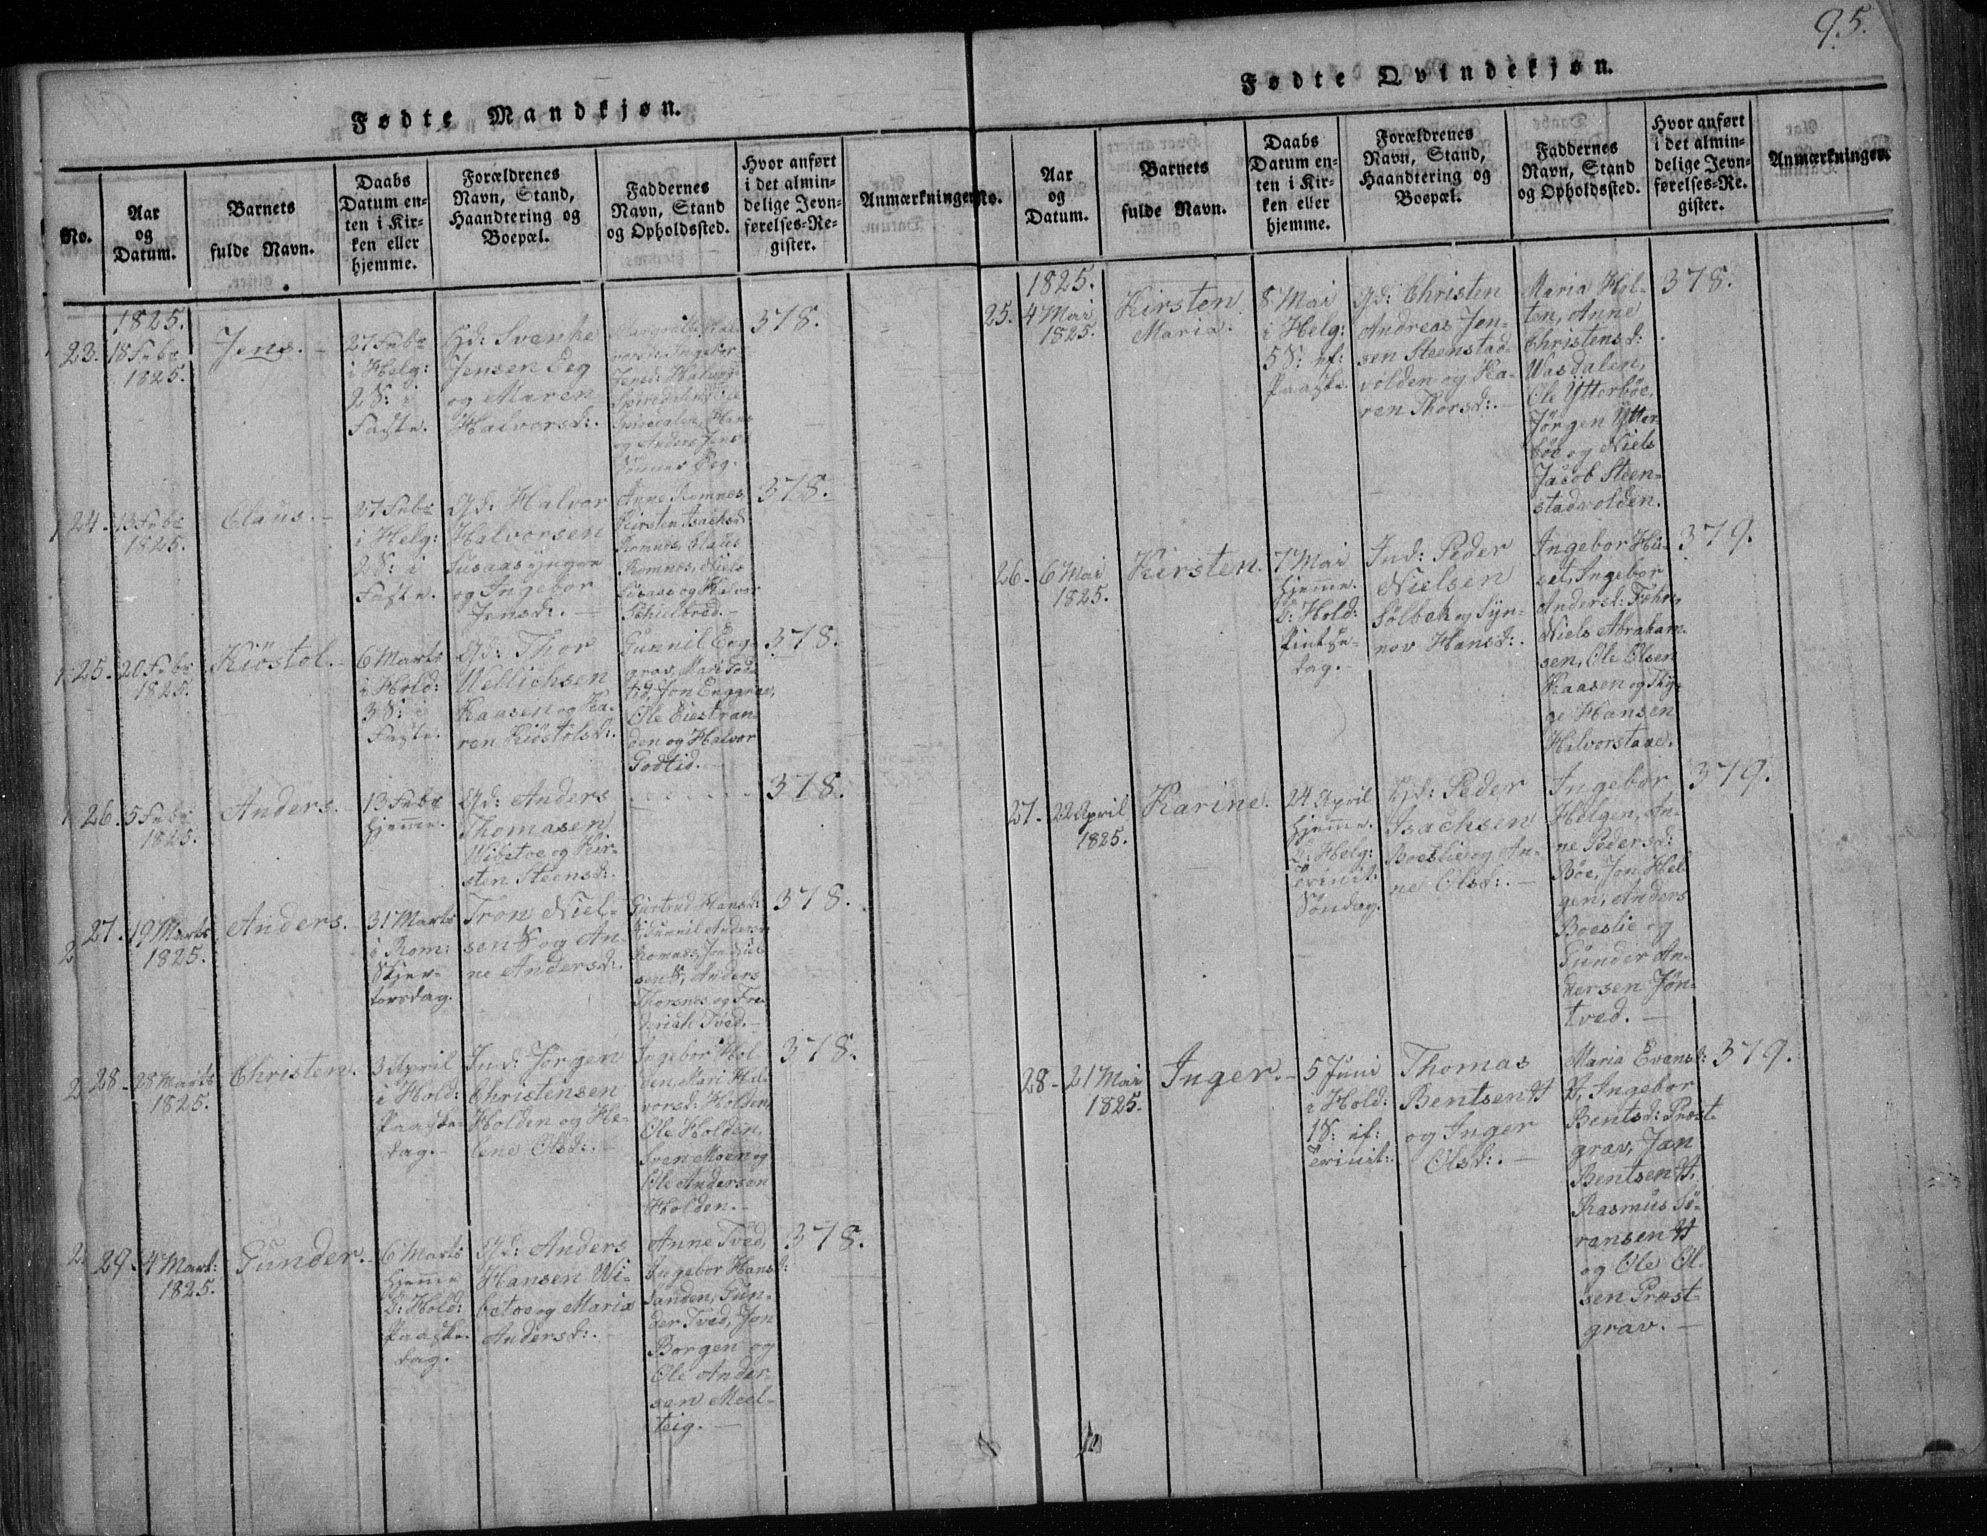 95.
Fødte Mandkjøn.
No.
Aar
og
Datum.
Barnets
fulde Navn.
Daabs
Datum en-
ten i Kir-
ken eller
hjemme.
Forældrenes
Navn, Stand,
Haandtering og
Boepæl.
Faddernes
Navn, Stand
og Opholdssted.
Hvor anført
i det almin-
delige Jevn-
førelses-Re-
gister.
Anmærkninger.
1825.
23. 18 Febr
1825.
Jens.
27 Febr
i Helg:
2 S: i
Faste.
Gd: Svenke
Jensen Eeg
og Maren
Halvorsd:.
og Anders Jens-
Sønner Eeg.
378.
24. 13 Febr
1825.
Claus.
27 Febr
i Helg:
2 S: i
Faste.
Gd: Halvor
Halvorsen
Lusaas yngre
og Ingebor
Jensd:.
Anne Romnes,
Kirsten Isachsd
Romnes, Claus
Romnes, Niels
Lusaas og Halvor
Schilbred.
378.
25. 20 Febr
1825.
Kiöstol.
6 Marts
i Hold:
3 S: i
Faste.
Gd: Thor
Wellichsen
Kaasen og Ka-
ren Kiöstolsd:.
Gunnil Eng-
grav, Mari God-
tid, Jon Enggrav,
Ole Eiestran-
den og Halvor
Godtid.
378.
26. 5 Febr
1825.
Anders.
13 Febr
hjemme.
Gd: Anders
Thomasen
Wibetoe og Kir-
sten Steensd:.
378.
27. 19 Marts
1825.
Anders.
31 Marts
i Rom:
Skjer-
torsdag.
Tron Niel-
sen S og An-
ne Andersd:.
Giertrud Hansd:
Gunnil Andersd
Romnes, Jon Niel-
sen S, Anders
Thorsnes og Fre-
derich Tved.
378.
28. 28 Marts
1825.
Christen.
3 April
i Hold:
Paaske-
dag.
Ind: Jörgen
Christensen
Holden og He-
lene Olsd:.
Ingebor Hol-
den, Mari Hal-
vorsd: Holden,
Ole Holden,
Sven Moen og
Ole Andersen
Holden.
378.
29. 4 Mart:
1825.
Gunder.
6 Marts
hjemme
D: Hold:
Paaske-
dag.
Gd: Anders
Hansen Wi-
betoe og Maria
Andersd:.
Anne Tved,
Ingebor Hansd:
Sanden, Gun-
der Tved, Jon
Borgen og
Ole Ander-
sen Meel-
teig.
378.
Fødte Qvindekjøn.
No.
Aar
og
Datum.
Barnets
fulde Navn.
Daabs
Datum en-
ten i Kir-
ken eller
hjemme.
Forældrenes
Navn, Stand,
Haandtering og
Boepæl.
Faddernes
Navn, Stand
og Opholdssted.
Hvor anført
i det almin-
delige Jevn-
førelses-Re-
gister.
Anmærkninger.
1825.
25. 4 Mai
1825.
Kirsten
Maria.
8 Mai
i Helg:
5 S: ef:
Paaske.
Gd: Christen
Andreas Jen-
sen Steenstad-
volden og Ka-
ren Thorsd:.
Maria Hol-
ten, Anne
Christensd:
Wasdalen,
Ole Ytterböe,
Jörgen Ytter-
böe og Niels
Jacob Steen-
stadvolden.
378.
26. 6 Mai
1825.
Kirsten.
7 Mai
hjemme.
D: Hold:
Pintse-
dag.
Ind: Peder
Nielsen
Sølbek og Syn-
nov Hansd:.
Ingebor Hu-
set, Ingebor
Andersd: Föhre,
Niels Abraham-
sen, Ole Olsen
Kaasen og Thy-
ge Hansen
Halvorstaae.
379.
27. 22 April
1825.
Karine.
24 April
hjemme.
D: Helg:
Trinit:
Söndag.
Gd: Peder
Isachsen
Boeslie og An-
ne Olsd:.
Ingebor
Helgen, An-
ne Pedersd:
Böe, Jon Hel-
gen, Anders
Boeslie og
Gunder An-
dersen Jön-
tved.
379.
28. 21 Mai
1825.
Inger.
5 Juni
i Hold:
1 S: ef:
Trinit:.
Thomas
Bentsen
og Inger
Olsd:.
Maria Evensd:
Ingebor
Bentsd: Præst-
grav, Jan
Bentsen
Rasmus Sö-
rensen
og Ole Ol-
sen Præst-
grav.
379.